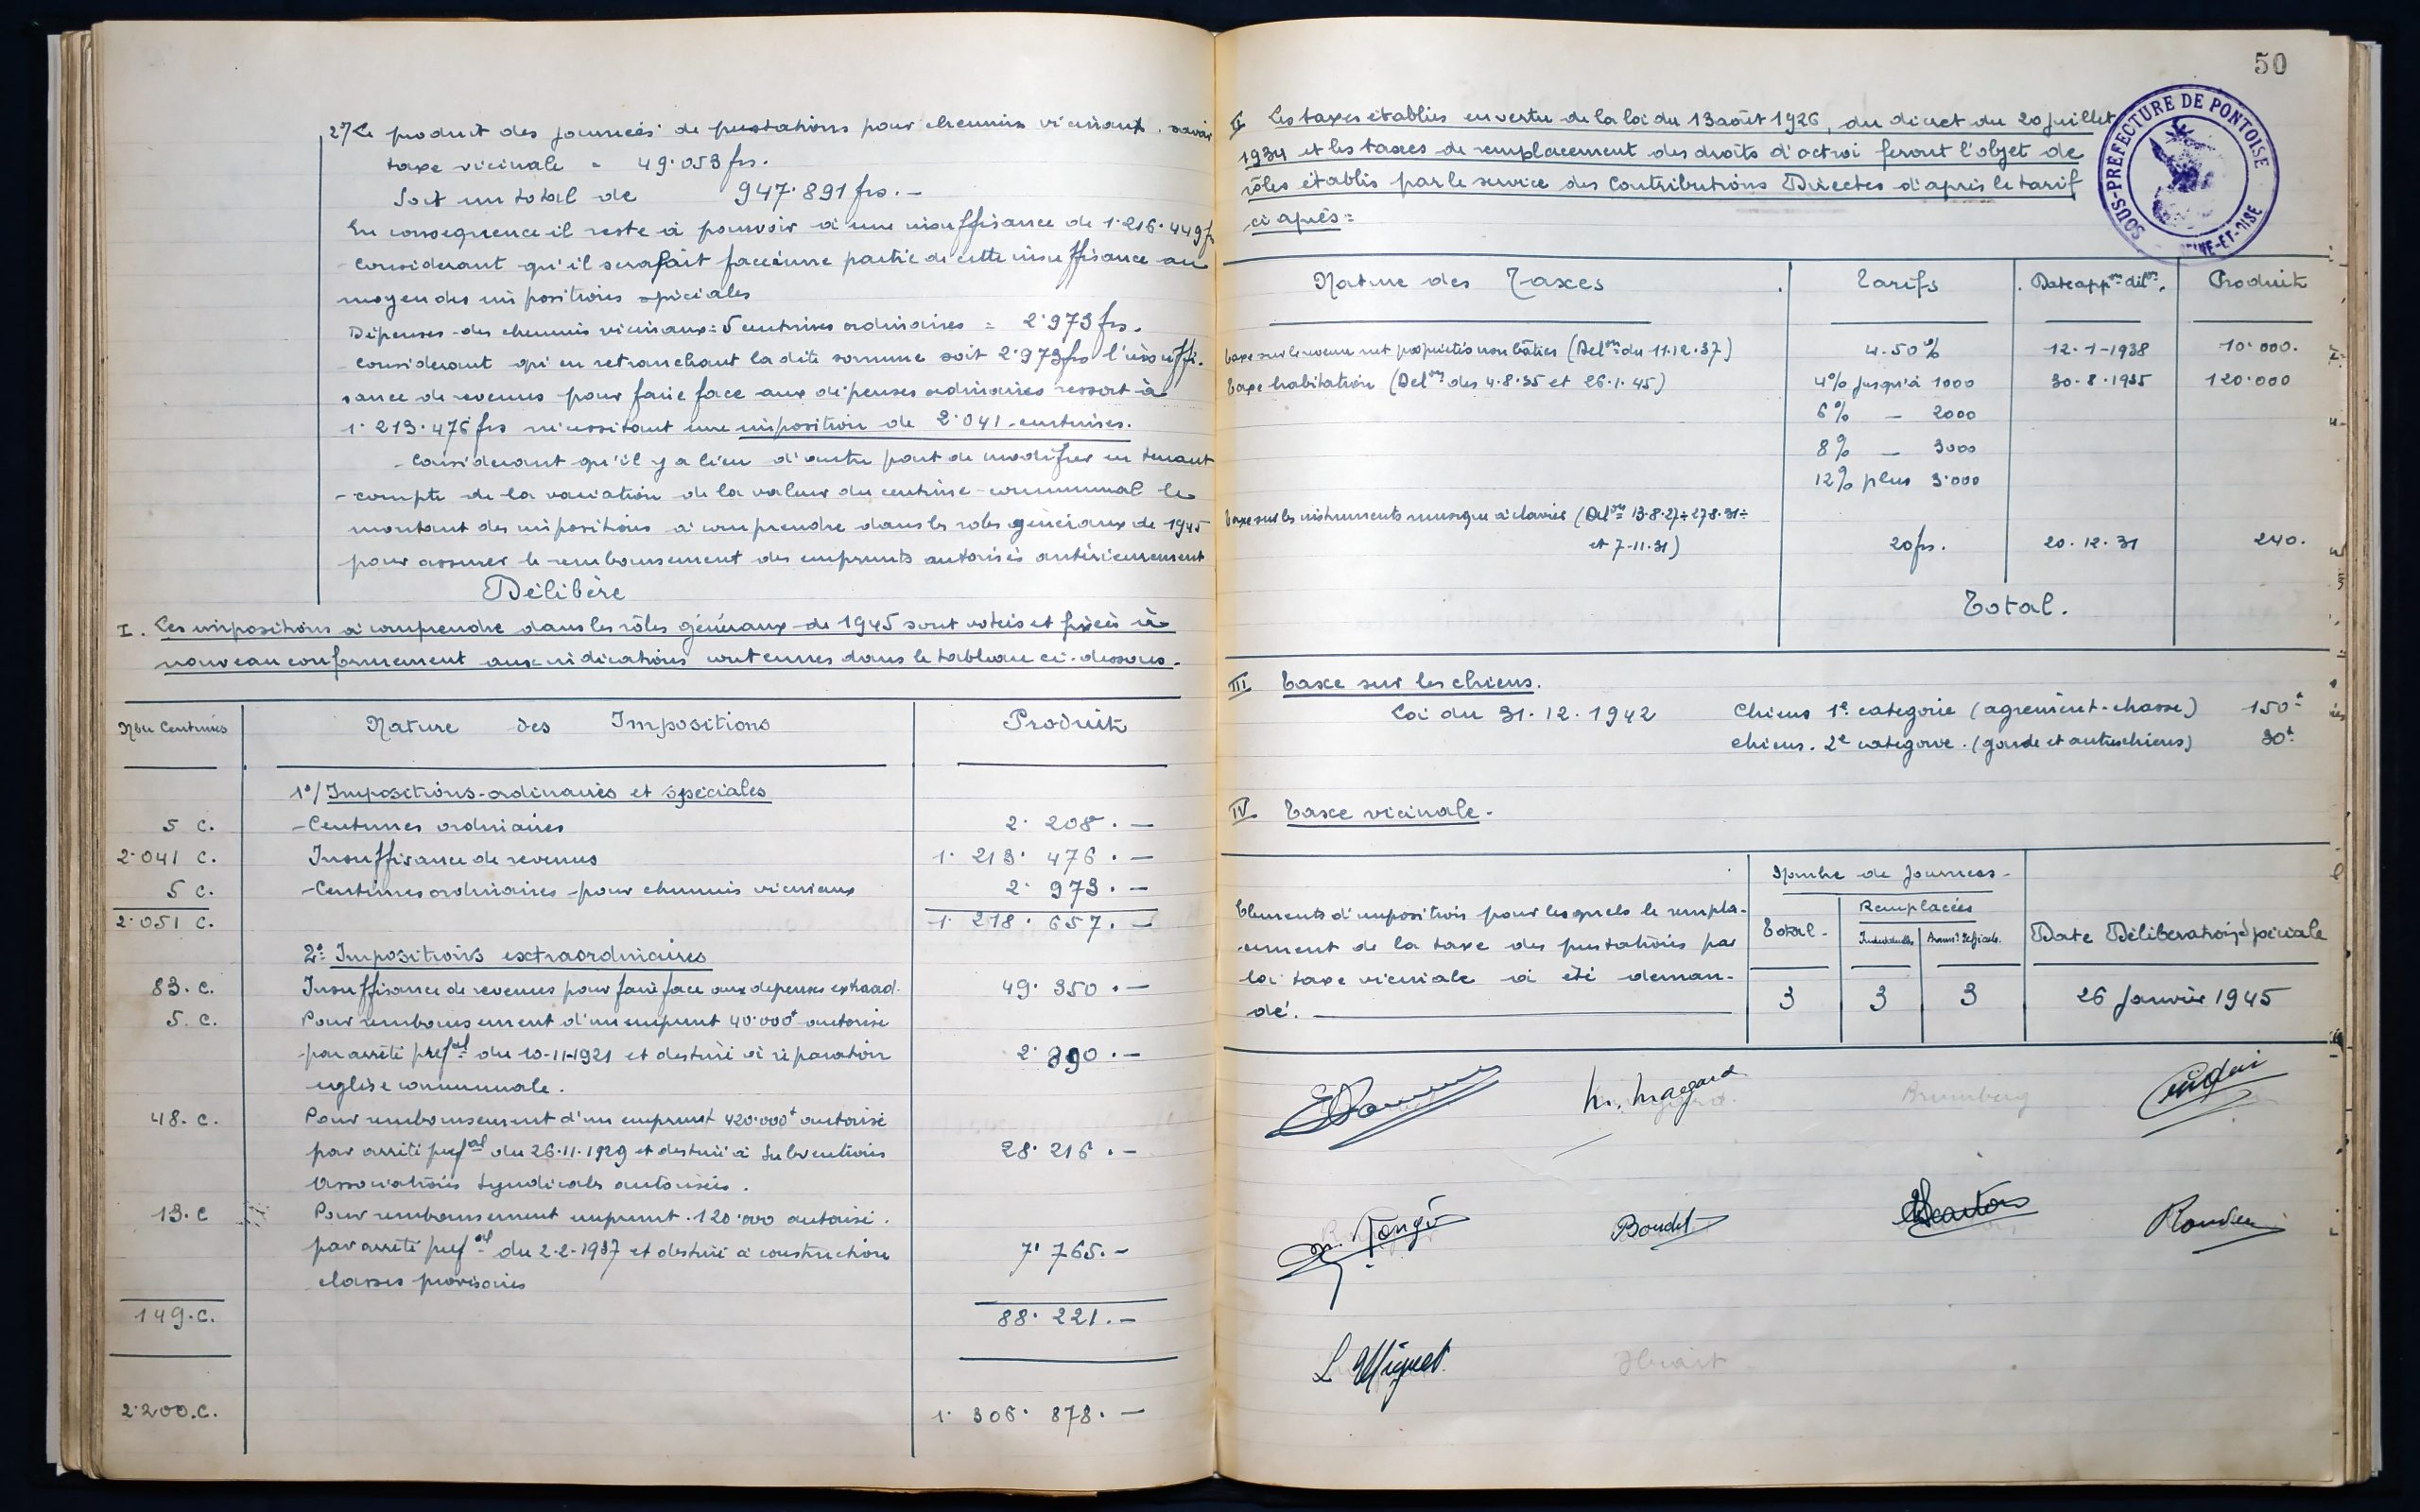 2°/ Le produit des journées de prestations pour chemins vicinaux. savoir
taxe vicinale = 49.053 frs.
Soit un total de 947.891 frs. —
En consequence il reste à pourvoir à une insuffisance de 1.216.449 f
Considerant qu'il sera fait face à une partie de cette insuffisance au
moyen des impositions spéciales
Dépenses des chemins vicinaux = 5 centimes ordinaires = 2.973 frs.
Considerant qu'en retranchant la dite somme soit 2.973 frs l'insuffi-
sance de revenus pour faire face aux dépenses ordinaires ressort à
1.213.476 frs nécessitant une imposition de 2.041 centimes.
Considerant qu'il y a lieu d'autre part de modifier en tenant
compte de la variation de la valeur du centime communal le
montant des impositions à comprendre dans les roles généraux de 1945
pour assurer le remboursement des emprunts autorisés antérieurement
Délibère
I. Les impositions à comprendre dans les rôles généraux de 1945 sont votées et fixées à
nouveau conformement aux indications contenues dans le tableau ci-dessous.
Nbre Centimes Nature des Impositions Produit
1°/ Impositions ordinaires et spéciales
5 c. Centimes ordinaires 2.208. —
2.041 c. Insuffisance de revenus 1.213.476. —
5 c. Centimes ordinaires pour chemins vicinaux 2.973. —
2.051 c. 1.218.657. —
2° Impositions extraordinaires
83. c. Insuffisance de revenus pour faire face aux depenses extraord. 49.350. —
5. c. Pour remboursement d'un emprunt 40.000f autorisé
par arrêté prefal du 10-11-1921 et destiné à réparation 2.890. —
église communale.
48. c. Pour remboursement d'un emprunt 420.000f autorisé
par arrêté prefal du 26.11.1929 et destiné à Subventions 28.216. —
Associations Syndicales autorisées.
13. c Pour remboursement emprunt. 120.000 autorisé.
par arrêté prefal du 2-2-1937 et destiné à construction 7.765. —
classes provisoires
149. c. 88.221. —
2.200. c. 1.306.878. —
50
SOUS-PREFECTURE DE PONTOISE
SEINE-ET-OISE
II Les taxes établies en vertu de la loi du 13 août 1926, du décret du 20 juillet
1934 et les taxes de remplacement des droits d'octroi feront l'objet de
rôles établis par le service des Contributions Directes d'après le tarif
ci après =
Nature des Taxes Tarifs Date appon délon. Produit
Taxe sur le revenu net propriétés non bâties (Delon du 11.12.37) 4.50% 12-1-1938 10.000.
Taxe habitation (Delons des 4.8.35 et 26.1.45) 4% jusqu'à 1000 30-8-1935 120.000
6% — 2000
8% — 3000
12% plus 3.000
Taxe sur les instruments musique à clavier (Delons 13.8.27 + 27.8.31 =
et 7-11-31) 20 frs. 20.12.31 240.
Total.
III Taxe sur les chiens.
Loi du 31.12.1942 Chiens 1e categorie (agrément-chasse) 150f
chiens. 2e categorie. (garde et autres chiens) 30f
IV Taxe vicinale.
Nombre de Journées
Elements d'imposition pour lesquels le rempla- Remplacées
cement de la taxe des prestations par Total. Individuelles Date Délibération spéciale
la taxe vicinale a été deman-
dé. 3 3 3 26 Janvier 1945
Brumberg
Boudet
L Miquet